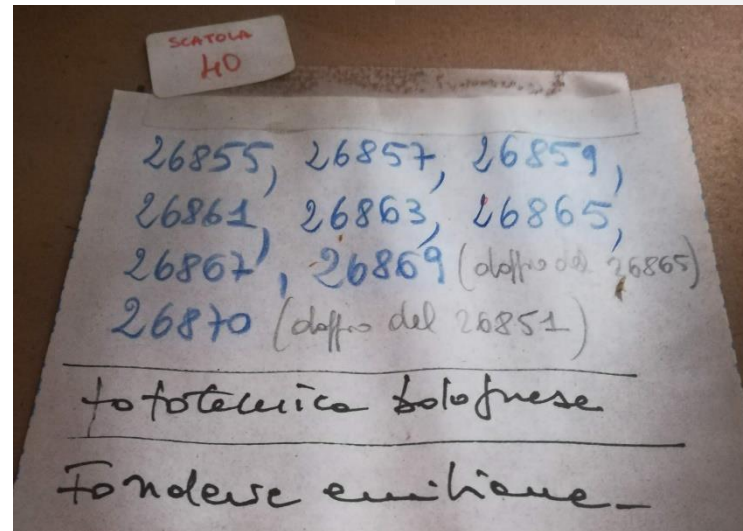 SCATOLA
40
26855, 26857, 26859,
26861, 26863, 26865,
26867, 26869 (doppio del 26865)
26870 (doppio del 26851)
fototecnica bolognese
Fonderie emiliane -